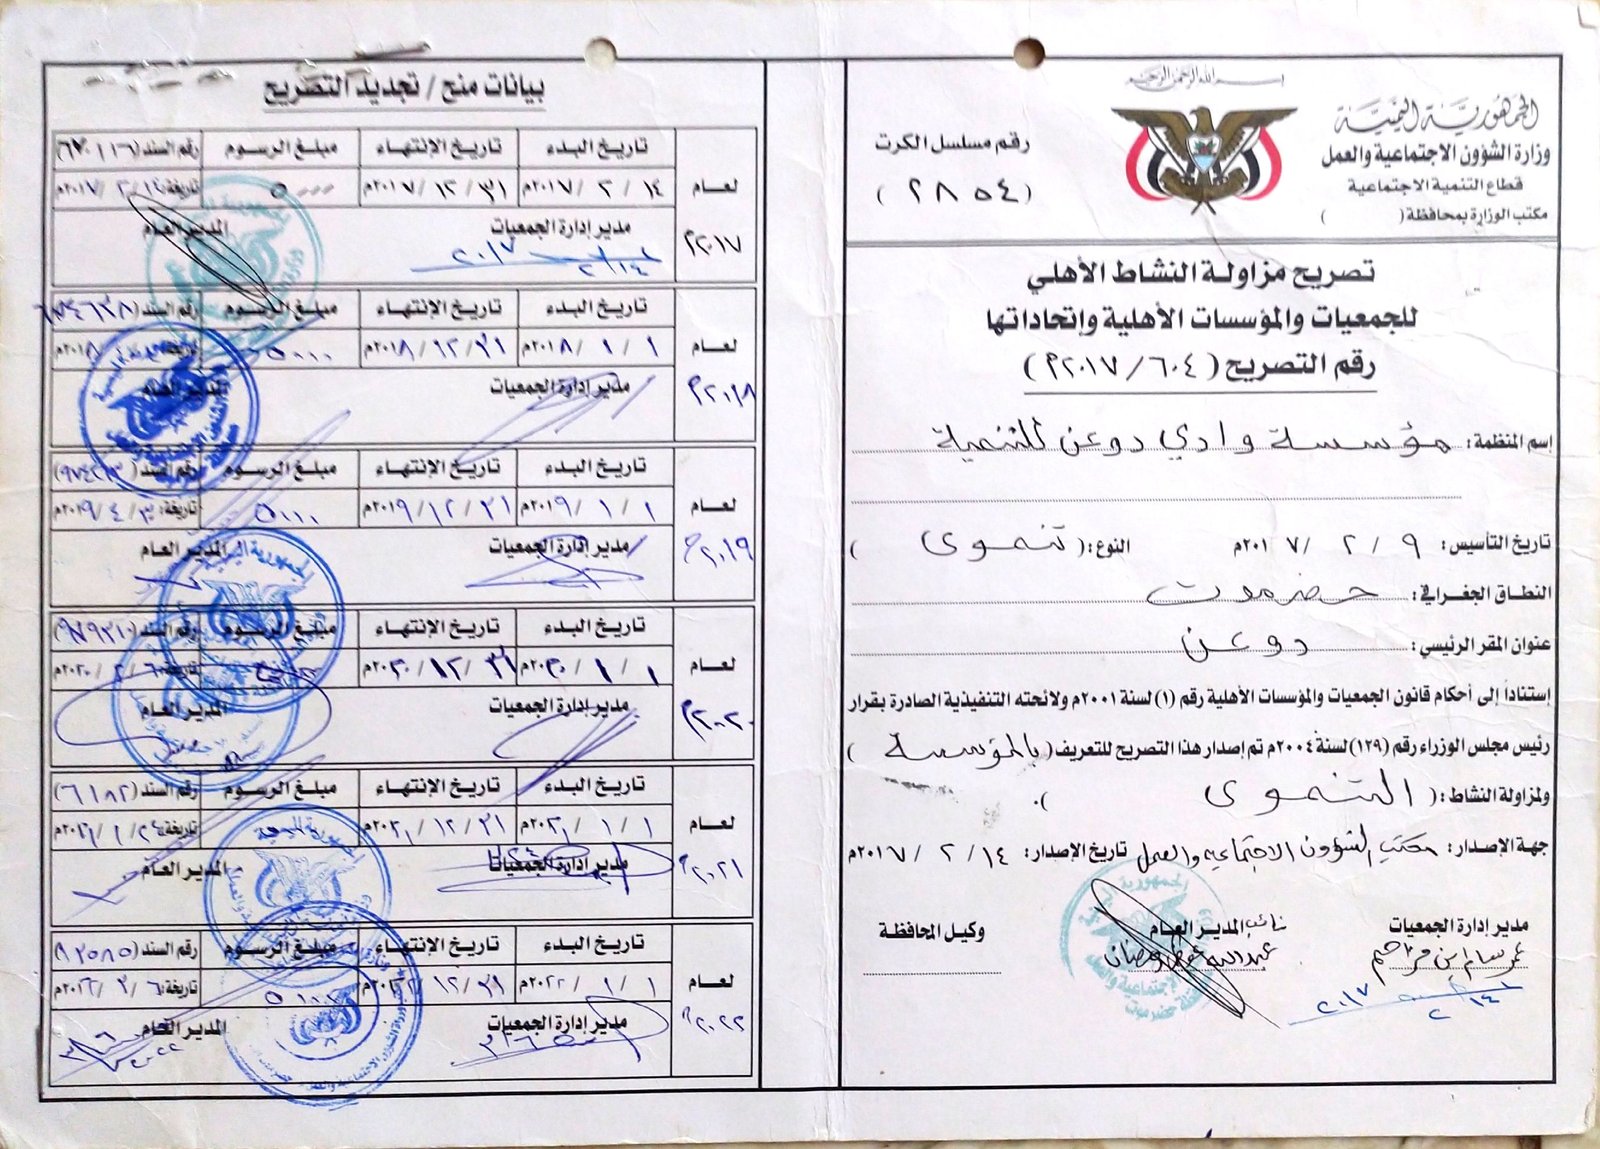 بسم الله الرحمن الرحيم
الجمهورية اليمنية
وزارة الشؤون الاجتماعية والعمل
قطاع التنمية الاجتماعية
مكتب الوزارة بمحافظة ( )
رقم مسلسل الكرت
( ٢٨٥٤ )
تصريح مزاولة النشاط الأهلي
للجمعيات والمؤسسات الأهلية وإتحاداتها
رقم التصريح ( ٦٠٤ / ٢٠١٧م )
إسم المنظمة: مؤسسة وادي دوعن للتنمية
تاريخ التأسيس: ٩ / ٢ / ٢٠١٧م النوع: ( تنموي )
النطاق الجغرافي: حضرموت
عنوان المقر الرئيسي: دوعن
إستناداً إلى أحكام قانون الجمعيات والمؤسسات الأهلية رقم (١) لسنة ٢٠٠١م ولائحته التنفيذية الصادرة بقرار
رئيس مجلس الوزراء رقم (١٢٩) لسنة ٢٠٠٤م تم إصدار هذا التصريح للتعريف ( بالمؤسسة )
ولمزاولة النشاط: ( التنموي ).
جهة الإصدار: مكتب الشؤون الاجتماعية والعمل تاريخ الإصدار: ١٤ / ٢ / ٢٠١٧م
مدير إدارة الجمعيات نائب المدير العام وكيل المحافظة
بيانات منح / تجديد التصريح
لعام ٢٠١٧م
تاريخ البدء تاريخ الإنتهاء مبلغ الرسوم رقم السند
١٤ / ٢ / ٢٠١٧م ٣١ / ١٢ / ٢٠١٧م ٥٠٠٠ تاريخة: ١٤ / ٢ / ٢٠١٧م
مدير إدارة الجمعيات المدير العام
لعام ٢٠١٨م
تاريخ البدء تاريخ الإنتهاء مبلغ الرسوم رقم السند
١ / ١ / ٢٠١٨م ٣١ / ١٢ / ٢٠١٨م ٥٠٠٠
مدير إدارة الجمعيات المدير العام
لعام ٢٠١٩م
تاريخ البدء تاريخ الإنتهاء مبلغ الرسوم رقم السند
١ / ١ / ٢٠١٩م ٣١ / ١٢ / ٢٠١٩م ٥٠٠٠ تاريخة: ٣ / ٤ / ٢٠١٩م
مدير إدارة الجمعيات المدير العام
لعام ٢٠٢٠م
تاريخ البدء تاريخ الإنتهاء مبلغ الرسوم رقم السند
١ / ١ / ٢٠٢٠م ٣١ / ١٢ / ٢٠٢٠م تاريخة: ٦ / ٢ / ٢٠٢٠م
مدير إدارة الجمعيات المدير العام
لعام ٢٠٢١م
تاريخ البدء تاريخ الإنتهاء مبلغ الرسوم رقم السند (٦١٨٢)
١ / ١ / ٢٠٢١م ٣١ / ١٢ / ٢٠٢١م تاريخة: ٢٤ / ١ / ٢٠٢١م
مدير إدارة الجمعيات المدير العام
لعام ٢٠٢٢م
تاريخ البدء تاريخ الإنتهاء مبلغ الرسوم رقم السند
١ / ١ / ٢٠٢٢م ٣١ / ١٢ / ٢٠٢٢م ٥٠٠٠ تاريخة: ٦ / ٣ / ٢٠٢٢م
مدير إدارة الجمعيات المدير العام